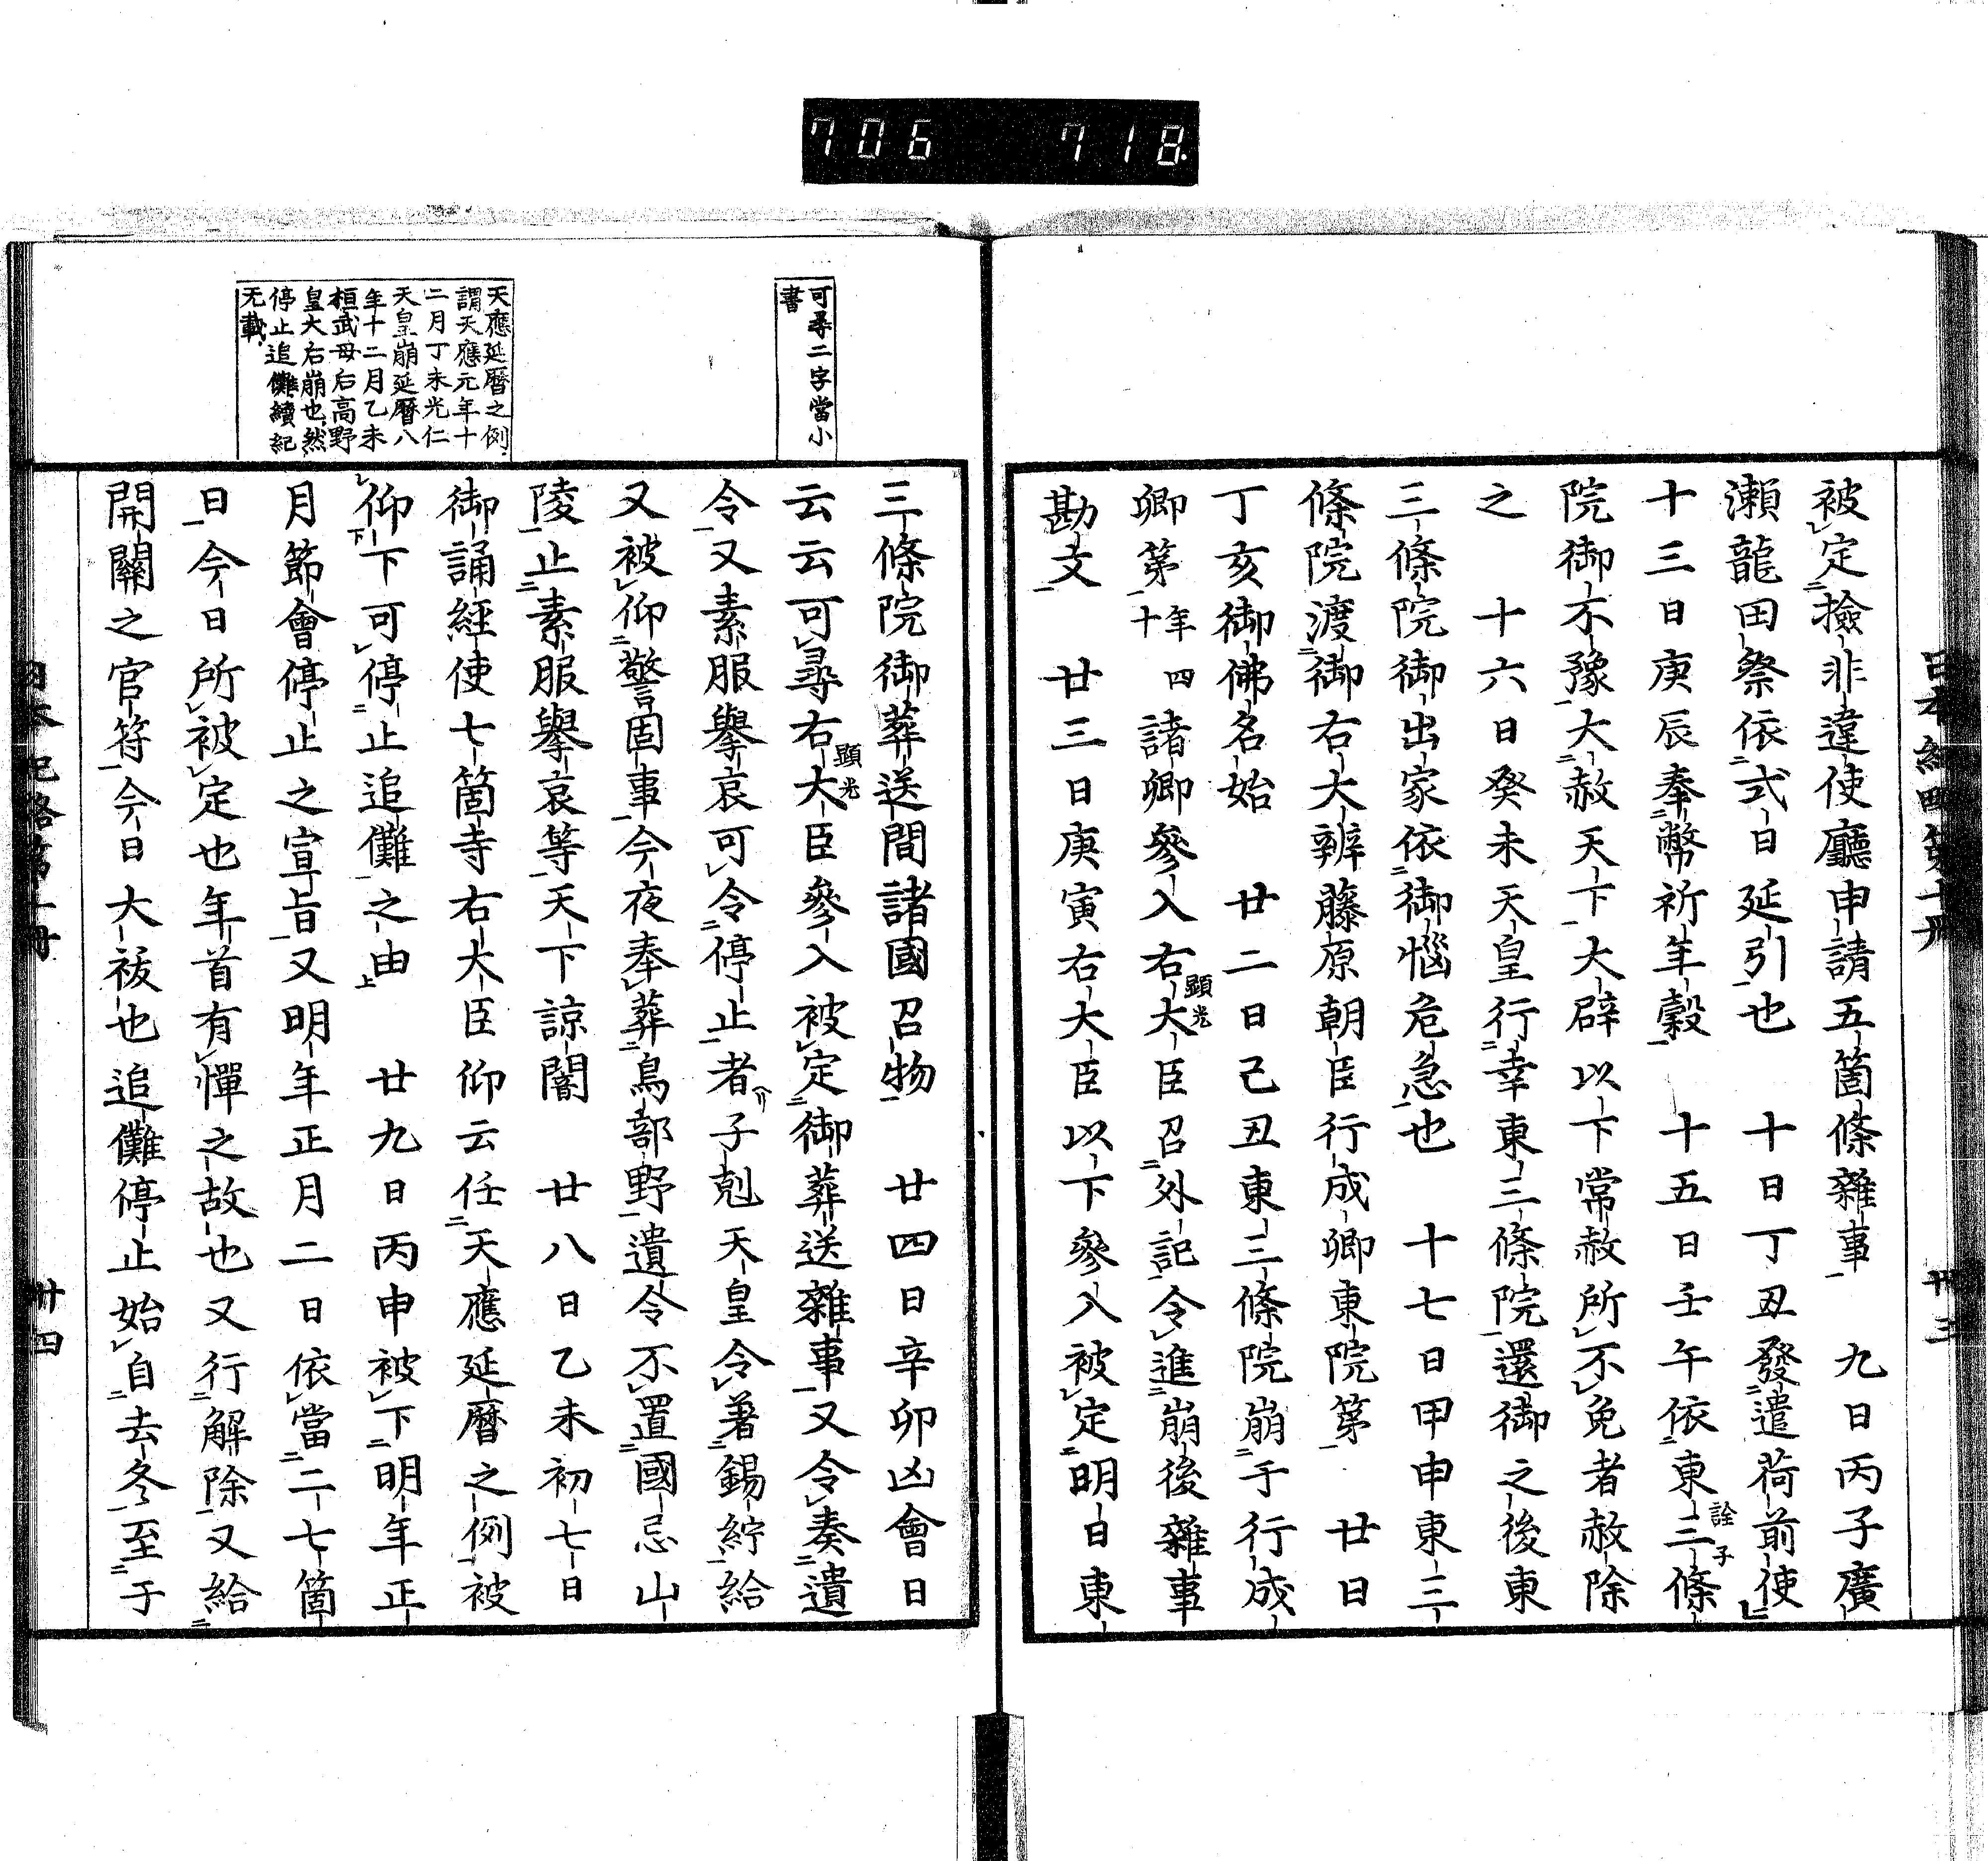 706 718
日本紀略第十冊 卅三
被定撿非違使廳申請五箇條雜事 九日丙子廣
瀬龍田祭依式日延引也 十日丁丑發遣荷前使
十三日庚辰奉幣祈年穀 十五日壬午依東三條詮子
院御不豫大赦天下大辟以下常赦所不免者赦除
之 十六日癸未天皇行幸東三條院還御之後東
三條院御出家依御惱危急也 十七日甲申東三
條院渡御右大辨藤原朝臣行成卿東院第 廿日
丁亥御佛名始 廿二日己丑東三條院崩于行成
卿第年四十諸卿參入右大臣顯光召外記令進崩後雜事
勘文 廿三日庚寅右大臣以下參入被定明日東
可尋二字當小
書
三條院御葬送間諸國召物 廿四日辛卯凶會日
云云可尋右大臣顯光參入被定御葬送雜事又令奏遺
令又素服擧哀可令停止者子剋天皇令著錫紵給
又被仰警固事今夜奉葬鳥部野遺令不置國忌山
陵止素服擧哀等天下諒闇 廿八日乙未初七日
御誦經使七箇寺右大臣仰云任天應延曆之例被
仰下可停止追儺之由 廿九日丙申被下明年正
月節會停止之宣旨又明年正月二日依當二七箇
日今日所被定也年首有憚之故也又行解除又給
開關之官符今日大祓也追儺停止始自去冬至于
天應延曆之例
謂天應元年十
二月丁未光仁
天皇崩延曆八
年十二月乙未
桓武母后高野
皇大后崩也然
停止追儺續紀
无載
日本紀略第十冊 卅四